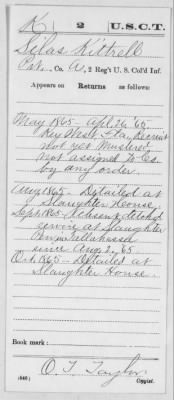 K | 2 | U.S.C.T.
Silas Kittrell
Pvt., Co. A, 2 Reg't U. S. Col'd Inf.
Appears on Returns as follows:
May 1865 - Apl. 26 '65
Key West Fla. Recruit
not yet mustered
not assigned to Co.
by any order.
Aug 1865 - Detailed at
Slaughter House
Sept 1865 - Absent detchd
service at Slaughter
Pen Tallahassee
since Aug. 2, 65
Oct. 1865 - Detailed at
Slaughter House.
Book mark:
(546)
O. T. Taylor
Copyist.